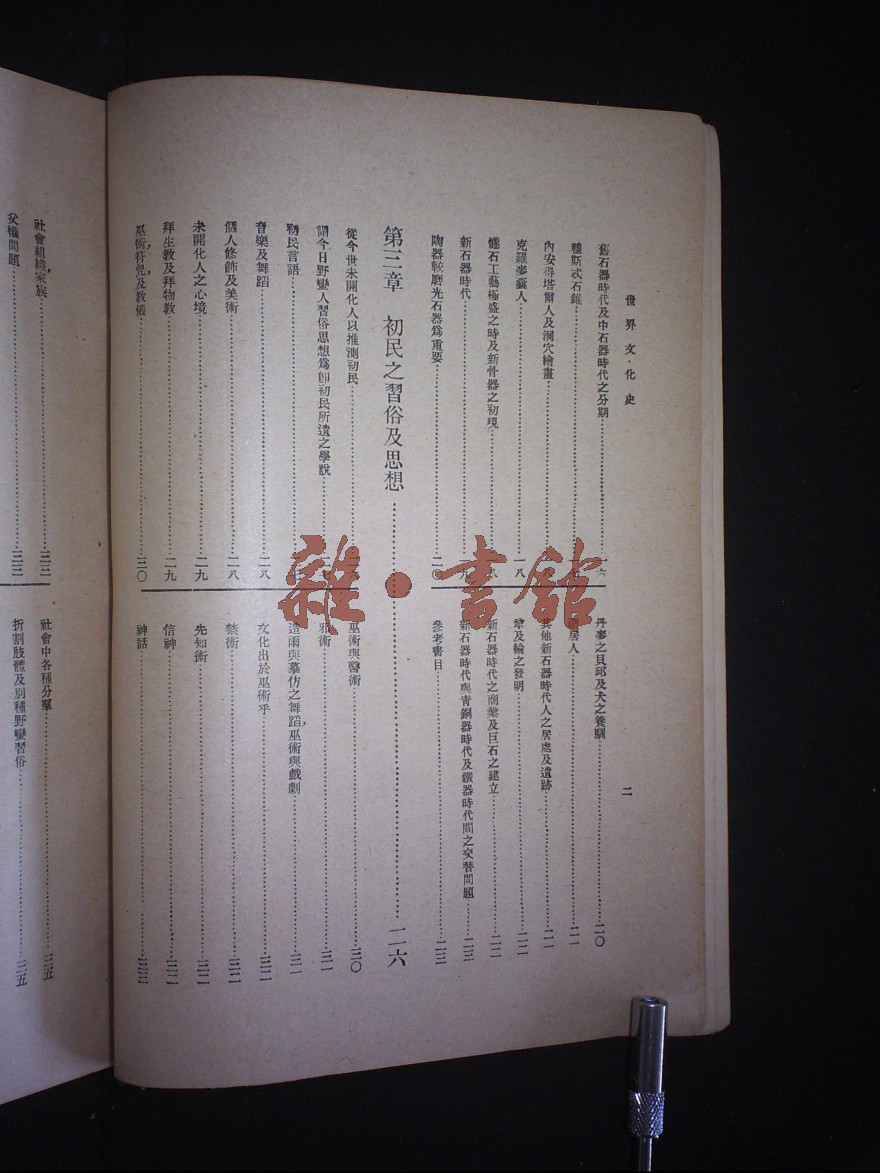 世界文化史
二
舊石器時代及中石器時代之分期……一六
穆斯忒石錐
內安得塔爾人及洞穴繪畫
克羅麥囊人……一八
燧石工藝極盛之時及新骨器之初現
新石器時代
陶器較磨光石器爲重要……二〇
丹麥之貝邱及犬之養馴……二〇
居人……二一
其他新石器時代人之居處及遺跡……二一
犂及輪之發明……二二
新石器時代之商業及巨石之建立……二二
新石器時代與青銅器時代及鐵器時代間之交替問題……二三
參考書目……二三
第三章 初民之習俗及思想……二六
從今世未開化人以推測初民
謂今日野蠻人習俗思想爲即初民所遺之學說
初民言語
音樂及舞蹈……二八
個人修飾及美術……二八
未開化人之心境……二九
拜生教及拜物教……二九
巫術,符咒,及教儀……三〇
巫術與醫術……三〇
邪術……三一
造雨與摹仿之舞蹈,巫術與戲劇……三一
文化出於巫術乎……三二
禁術……三二
先知術……三二
信神……三二
神話……三三
社會組織,家族……三三
父權問題……三三
社會中各種分羣……三五
折割肢體及別種野蠻習俗……三五
雜·書館